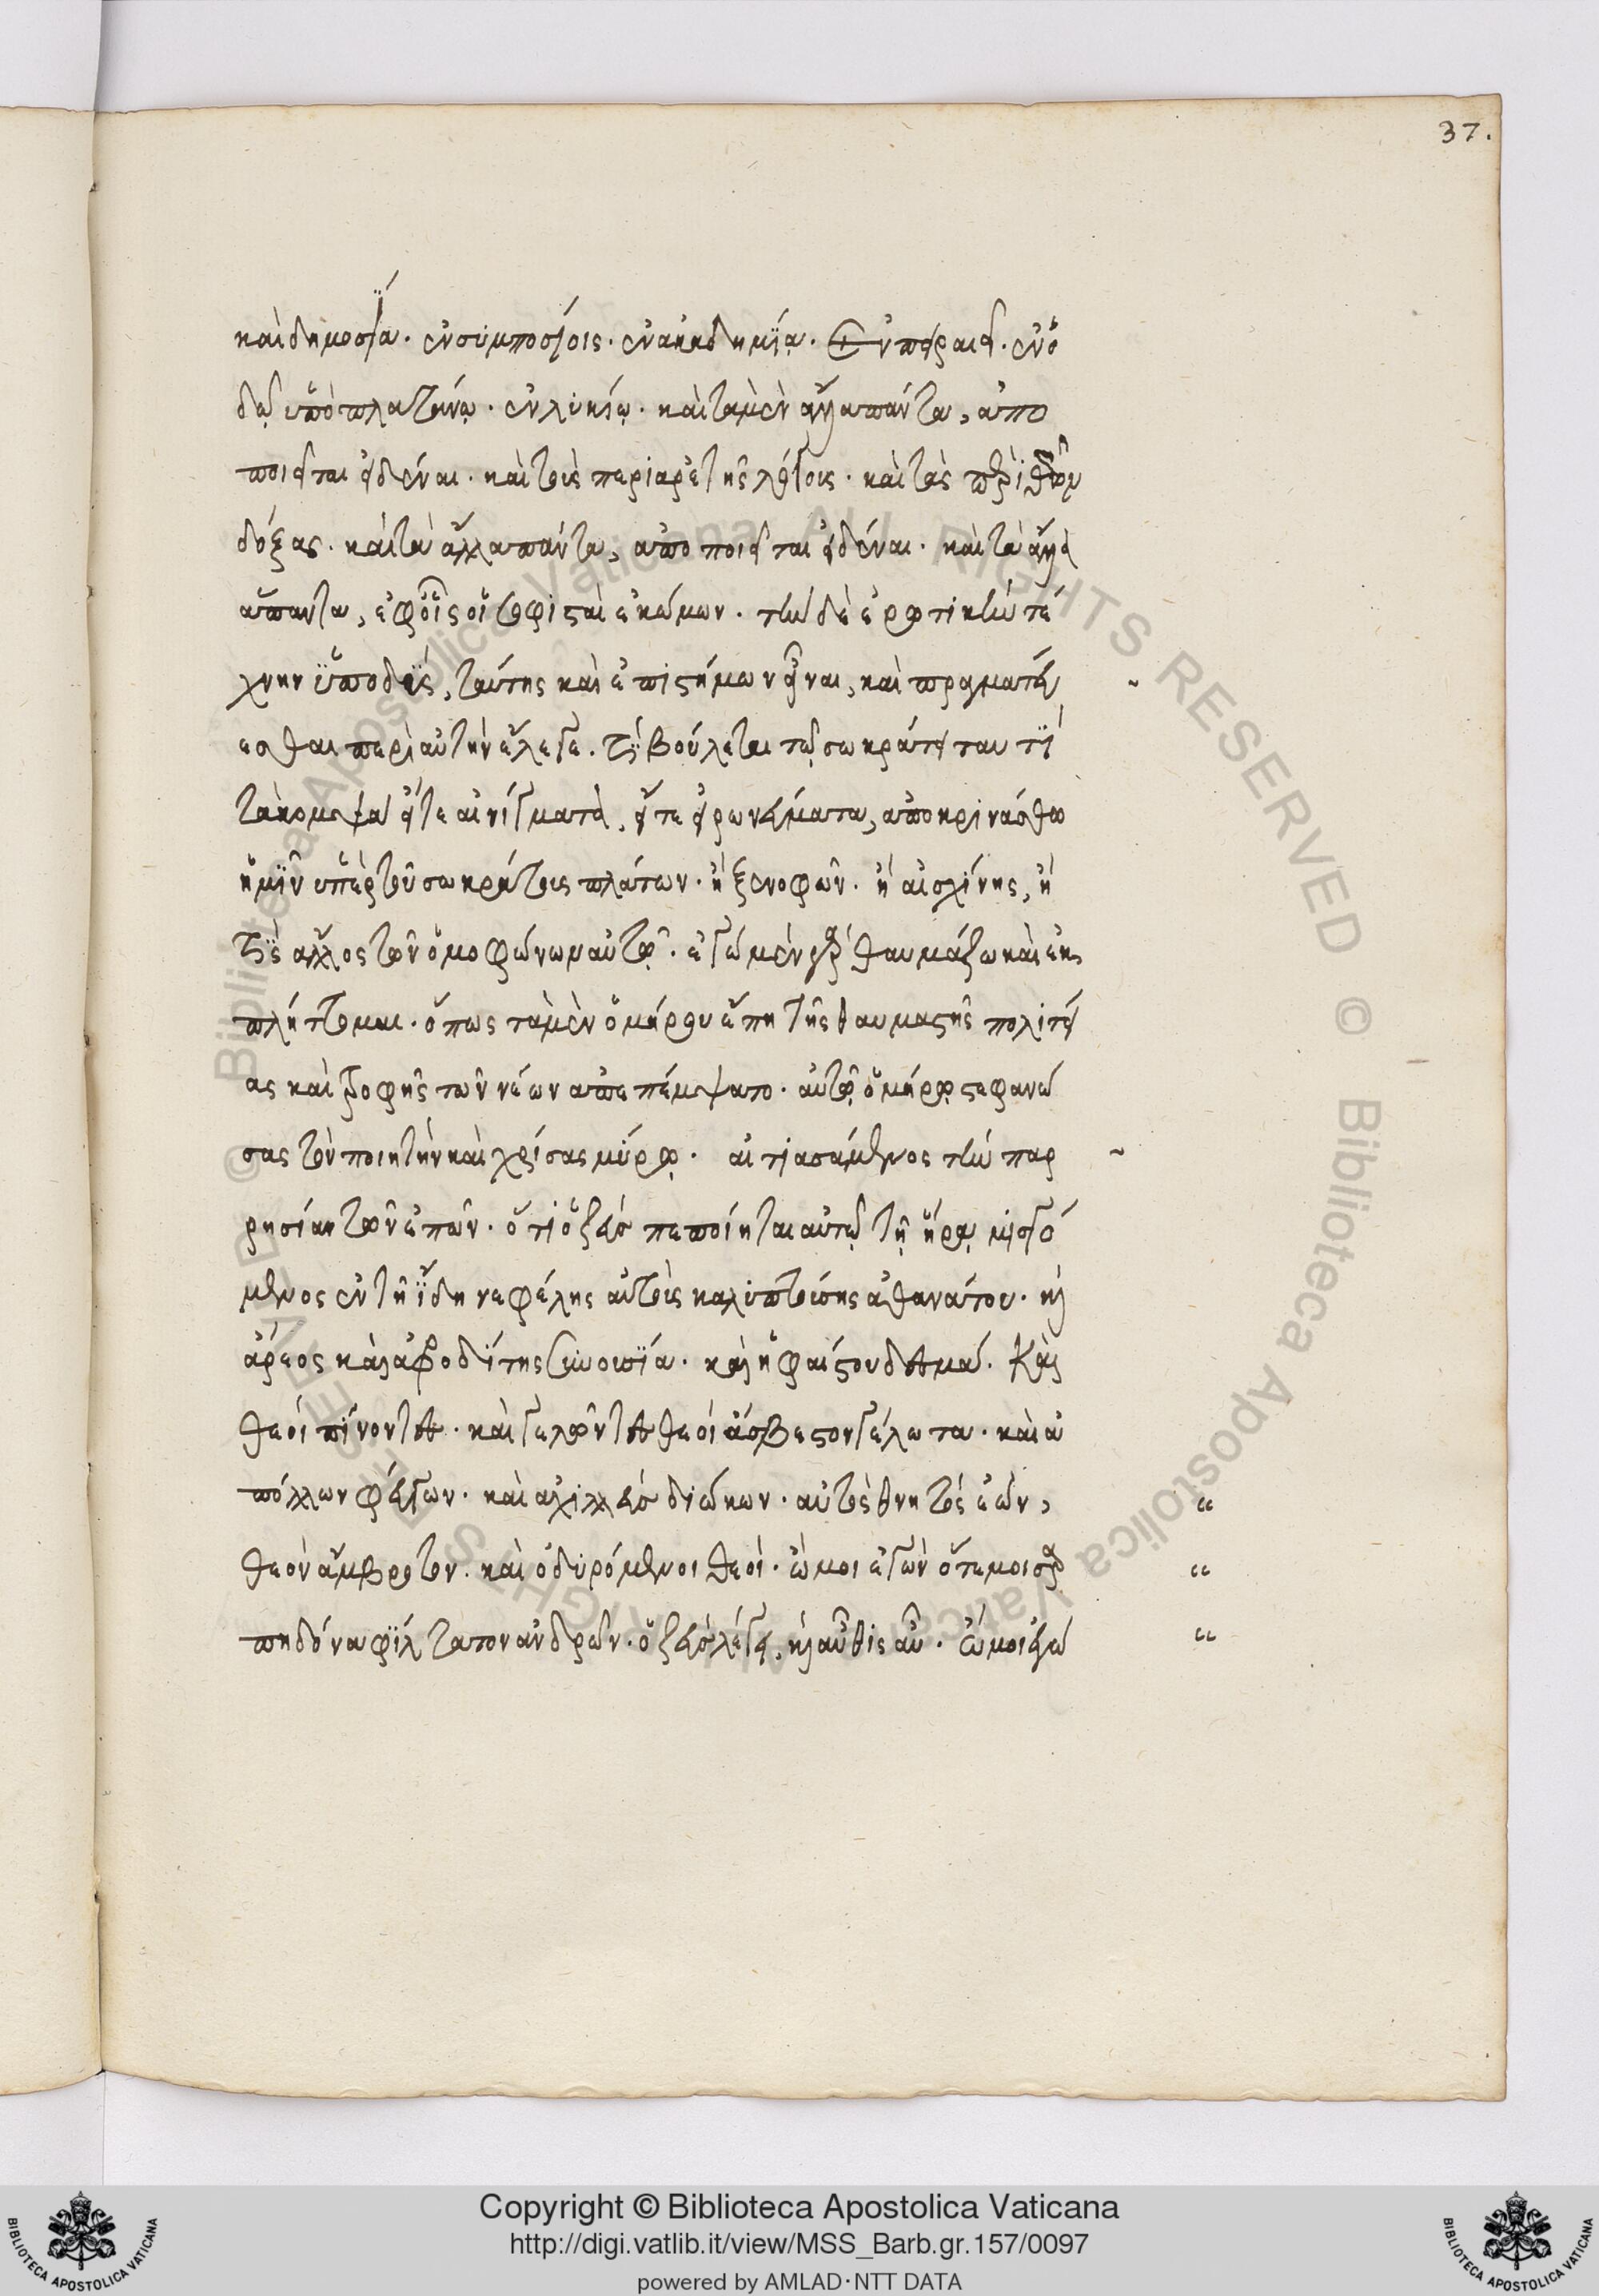 37.
καὶ δημοσίᾳ. ἐν συμποσίοις. ἐν ἀκαδημίᾳ. ἐν πειραιεῖ. ἐν ὁ
δῷ ὑπὸ πλατάνῳ. ἐν λυκίῳ. καὶ τὰ μὲν ἄλλα πάντα, ἀπο
ποιεῖται εἰδέναι. καὶ τοὺς περὶ ἀρετῆς λόγους. καὶ τὰς περὶ θεῶν
δόξας. καὶ τὰ ἄλλα πάντα, ἀποποιεῖται εἰδέναι. καὶ τὰ ἄλλα
ἅπαντα, ἐφ οἷς οἱ σοφισταὶ ἐκόμων. τὴν δὲ ἐρωτικὴν τέ
χνην ὑποδὺς, ταύτης καὶ ἐπιστήμων εἶναι, καὶ πραγματεύ
εσθαι περὶ αὐτὴν ἔλεγε. τί βούλεται τῷ σωκράτει ταυτὶ
τὰ κομψὰ εἴτε αἰνίγματα, εἴτε εἰρωνεύματα, ἀποκρινάσθω
ἡμῖν ὑπὲρ τοῦ σωκράτους πλάτων. ἢ ξενοφῶν. ἢ αἰσχίνης, ἢ
τὶς ἄλλος τῶν ὁμοφώνων αὐτῷ. ἐγὼ μὲν γὰρ θαυμάζω καὶ ἐκ
πλήττομαι. ὅπως τὰ μὲν ὁμήρου ἔπη τῆς θαυμαστῆς πολιτεί
ας καὶ τροφῆς τῶν νέων ἀπεπέμψατο. αὐτῷ ὁμήρῳ στεφανώ
σας τὸν ποιητὴν καὶ χρίσας μύρῳ. αἰτιασάμενος τὴν παρ
ρησίαν τῶν ἐπῶν. ὅτι ὁ ζεὺς πεποίηται αὐτῷ τῇ ἥρᾳ μισγό
μενος ἐν τῇ ἴδῃ νεφέλης αὐτοὺς καλυπτούσης ἀθανάτου. καὶ
ἄρεος καὶ ἀφροδίτης συνουσία. καὶ ἡφαίστου δεσμά. καὶ
θεοί πίνοντες. καὶ γελῶντες θεοί ἄσβεστον γέλωτα. καὶ ἀ
πόλλων φεύγων. καὶ ἀχιλλεὺς διώκων. αὐτὸς θνητὸς ἐὼν,
θεὸν ἄμβροτον. καὶ ὀδυρόμενοι θεοί. ὤμοι ἐγὼν ὅτε μοι σαρ
πηδόνα φίλτατον ἀνδρῶν. ὁ ζεὺς λέγει, καὶ αὖθις αὖ. ὤμοι ἐγώ